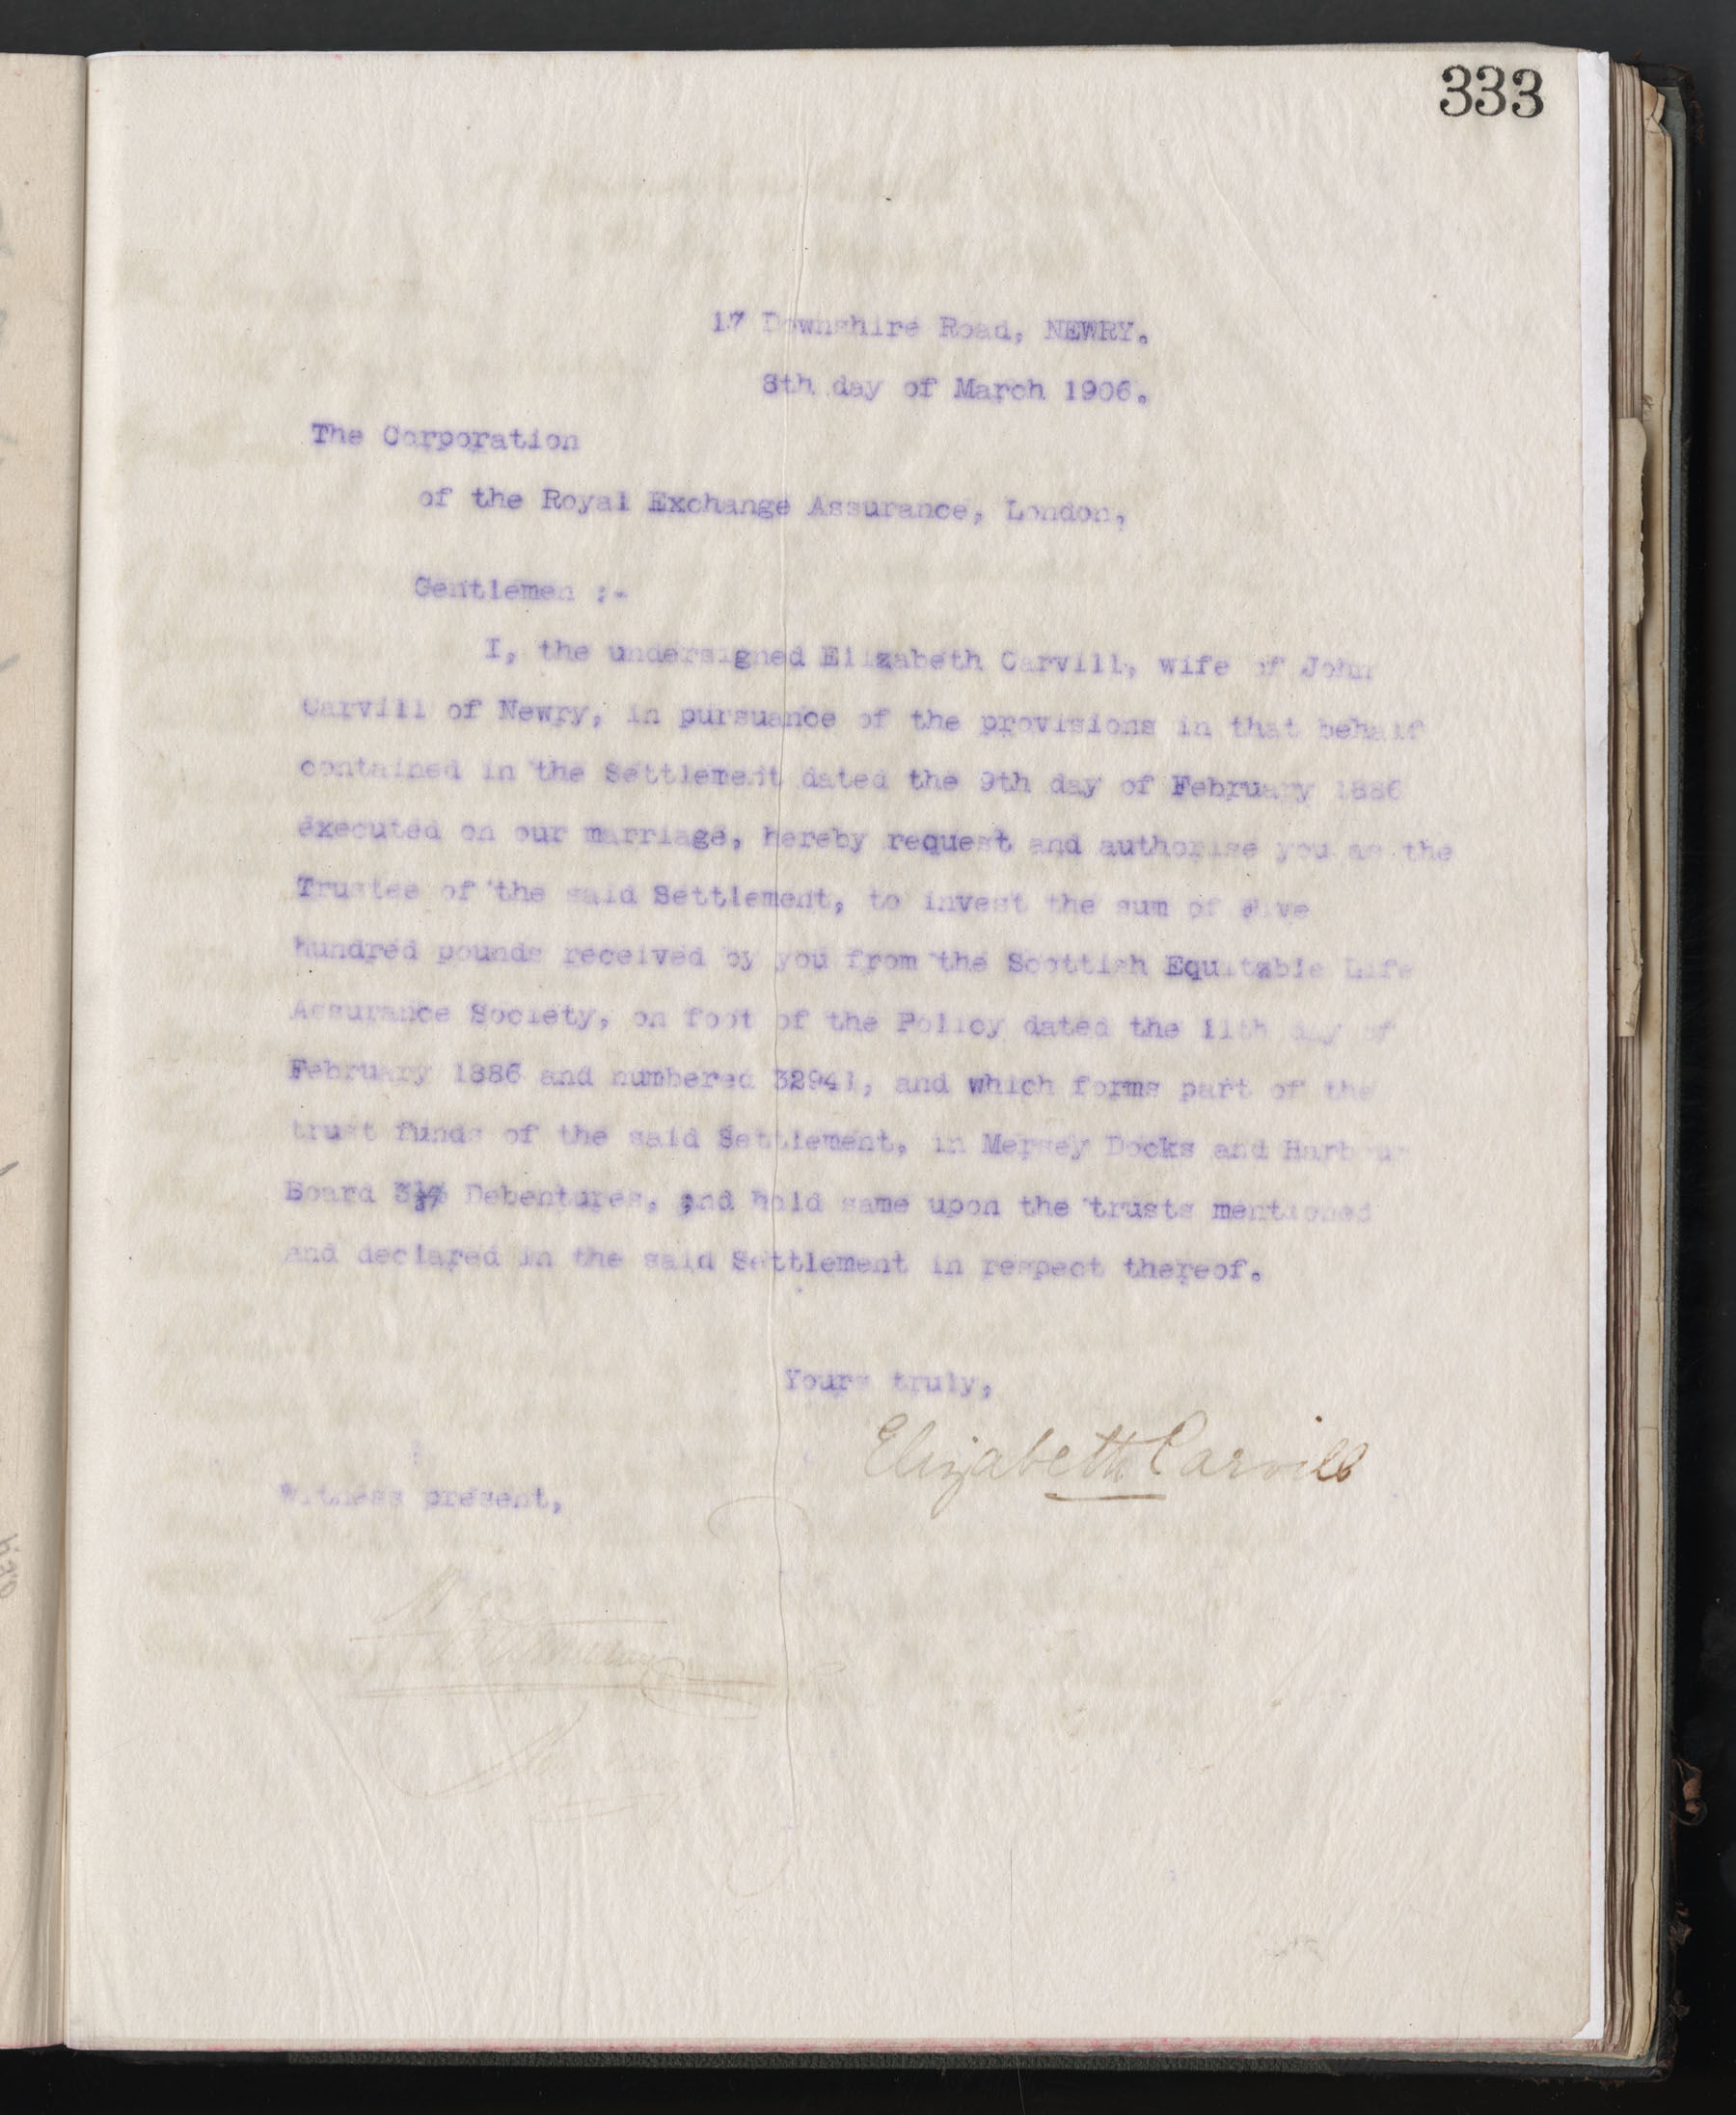 333
17 Downshire Road, NEWRY.
8th day of March 1906.
The Corporation
of the Royal Exchange Assurance, London,
Gentlemen :-
I, the undersigned Elizabeth Carvill, wife of John
Carvill of Newry, in pursuance of the provisions in that behalf
contained in the Settlement dated the 9th day of February 1886
executed on our marriage, hereby request and authorise you as the
Trustee of the said Settlement, to invest the sum of Five
hundred pounds received by you from the Scottish Equitable Life
Assurance Society, on foot of the Policy dated the 11th day of
February 1886 and numbered 32941, and which forms part of the
trust funds of the said Settlement, in Mersey Docks and Harbour
Board Debentures, and hold same upon the trusts mentioned
and declared in the said Settlement in respect thereof.
Yours truly,
Elizabeth Carvill
Witness present,